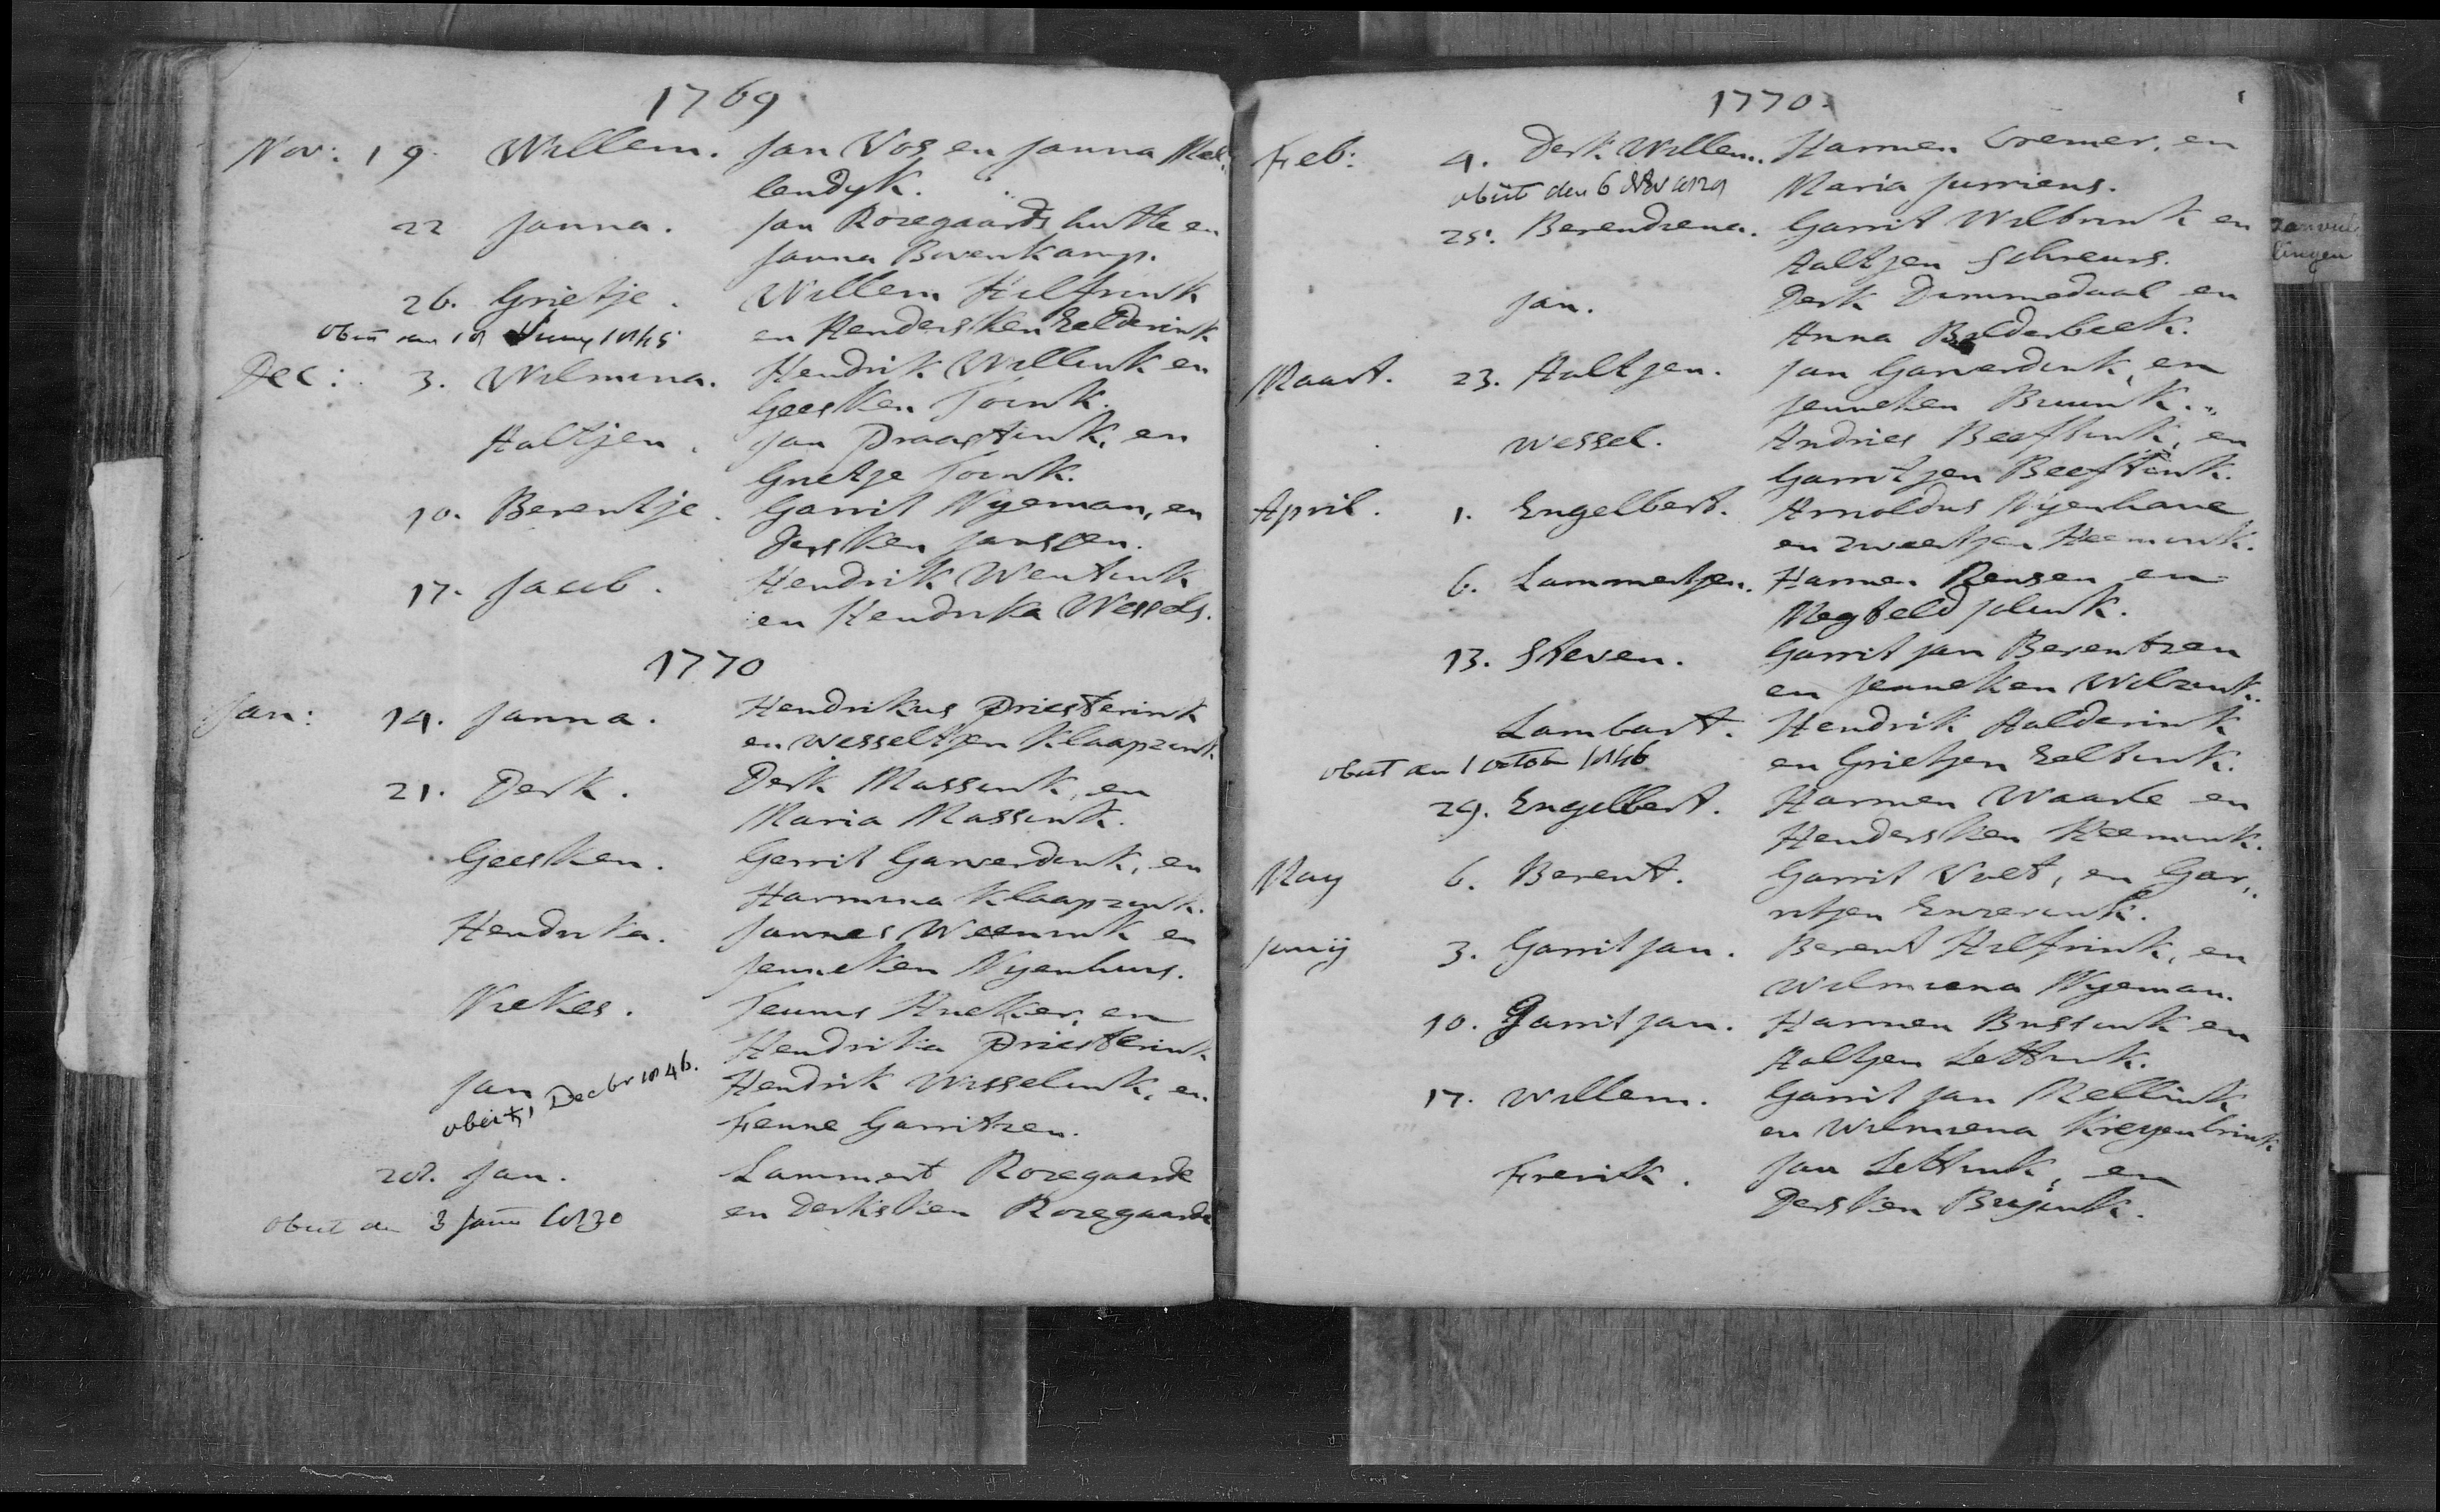 1769
Nov: 19. Willem. Jan Vos en Janna Mel„
lendyk.
22 Janna. Jan Rozegaards hutte en
Janna Bovenkamp.
26. Grietje. Willem Hilfrink
obiit 18 Juny 1845 en Hendersken Eelderink
Dec: 3. Wilmina. Hendrik Willink en
Geesken Toink.
Aaltjen. Jan Praastink, en
Grietje Toink.
10. Berentje. Garrit Nyeman, en
Dersken Janssen.
17. Jacob. Hendrik Wentink
en Hendrika Wessels.
1770
Jan: 14. Janna. Hendrikus Priesterink
en Wesseltjen Klaapzink.
21. Derk. Derk Massink, en
Maria Massink.
Geesken. Gerrit Garverdink, en
Harmina Klaapzink.
Hendrika. Jannes Weenink en
Jenneken Nyenhuis.
Teunis en
Hendrika Priesterink
Jan Hendrik Wesselink, en
obiit, Decbr 1846. Fenne Garritzen.
28. Jan. Lammert Rozegaarde
obiit den 3 1830 en Derksken Rozegaarde
1770.
Feb: 4. Derk Willem. Harmen Cremer, en
obiit den 6 Maria Jurriens.
25. Berendiena. Garrit Wilbrink en
Aaltjen Schreurs.
Jan. Derk Dimmedaal en
Anna Balderbeek.
Maart. 23. Aaltjen. Jan Garverdink, en
Jenneken Bruink.
Wessel. Andries Beeftink, en
Garritjen Beeftink.
April. 1. Engelbert. Arnoldus Nyenhave
en Zweertjen Heemink.
6. Lammertjen. Harmen Rensen en
Megteld Jolink.
13. Steven. Garrit Jan Berentzen
en Jenneken Wilzink.
Lambart. Hendrik Aalderink
obiit den 1 octobr 1846 en Grietjen Eeltink.
29. Engelbert. Harmen Waarle en
Hendersken Heemink.
May 6. Berent. Garrit Voet, en Gar„
ritjen Enzerink.
Junij 3. Garrit Jan. Berent Hilfrink, en
Wilmiena Nyeman.
10. Garrit Jan. Harmen Bussink en
Aaltjen Lettink.
17. Willem. Garrit Jan Mellink
en Wilmiena Kreyenbrink
Frerik. Jan Lettink, en
Dersken Bujink.
aanvul
lingen